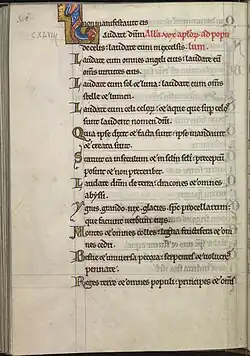 CXLVIII
non manifestavit eis
audate dn̄m
de celis : laudate eum in excelsis
Laudate eum omnes angeli eius : laudate eū
om̄s virtutes eius
Laudate eum sol et luna : laudate eum om̄s
stelle et lumen
Laudate eum celi celoꝝ : et aque que sup̄ celos
sunt laudent nomen dn̄i
Quia ipse dixit et facta sunt : ipse mandavit
et creata sunt
Statuit ea in et in sclm̄ scli : preceptū
posuit et non preteribit
Laudate dn̄m de terra : dracones et omnes
abyssi
Ignis grando nix glacies sps̄ procellarum :
que faciunt verbum eius
Montes et omnes colles : ligna fructifera et om̄
nes cedri
Bestie et universa pecora : serpentes et volucres
pennate
Reges terre et omnes populi : principes et om̄s